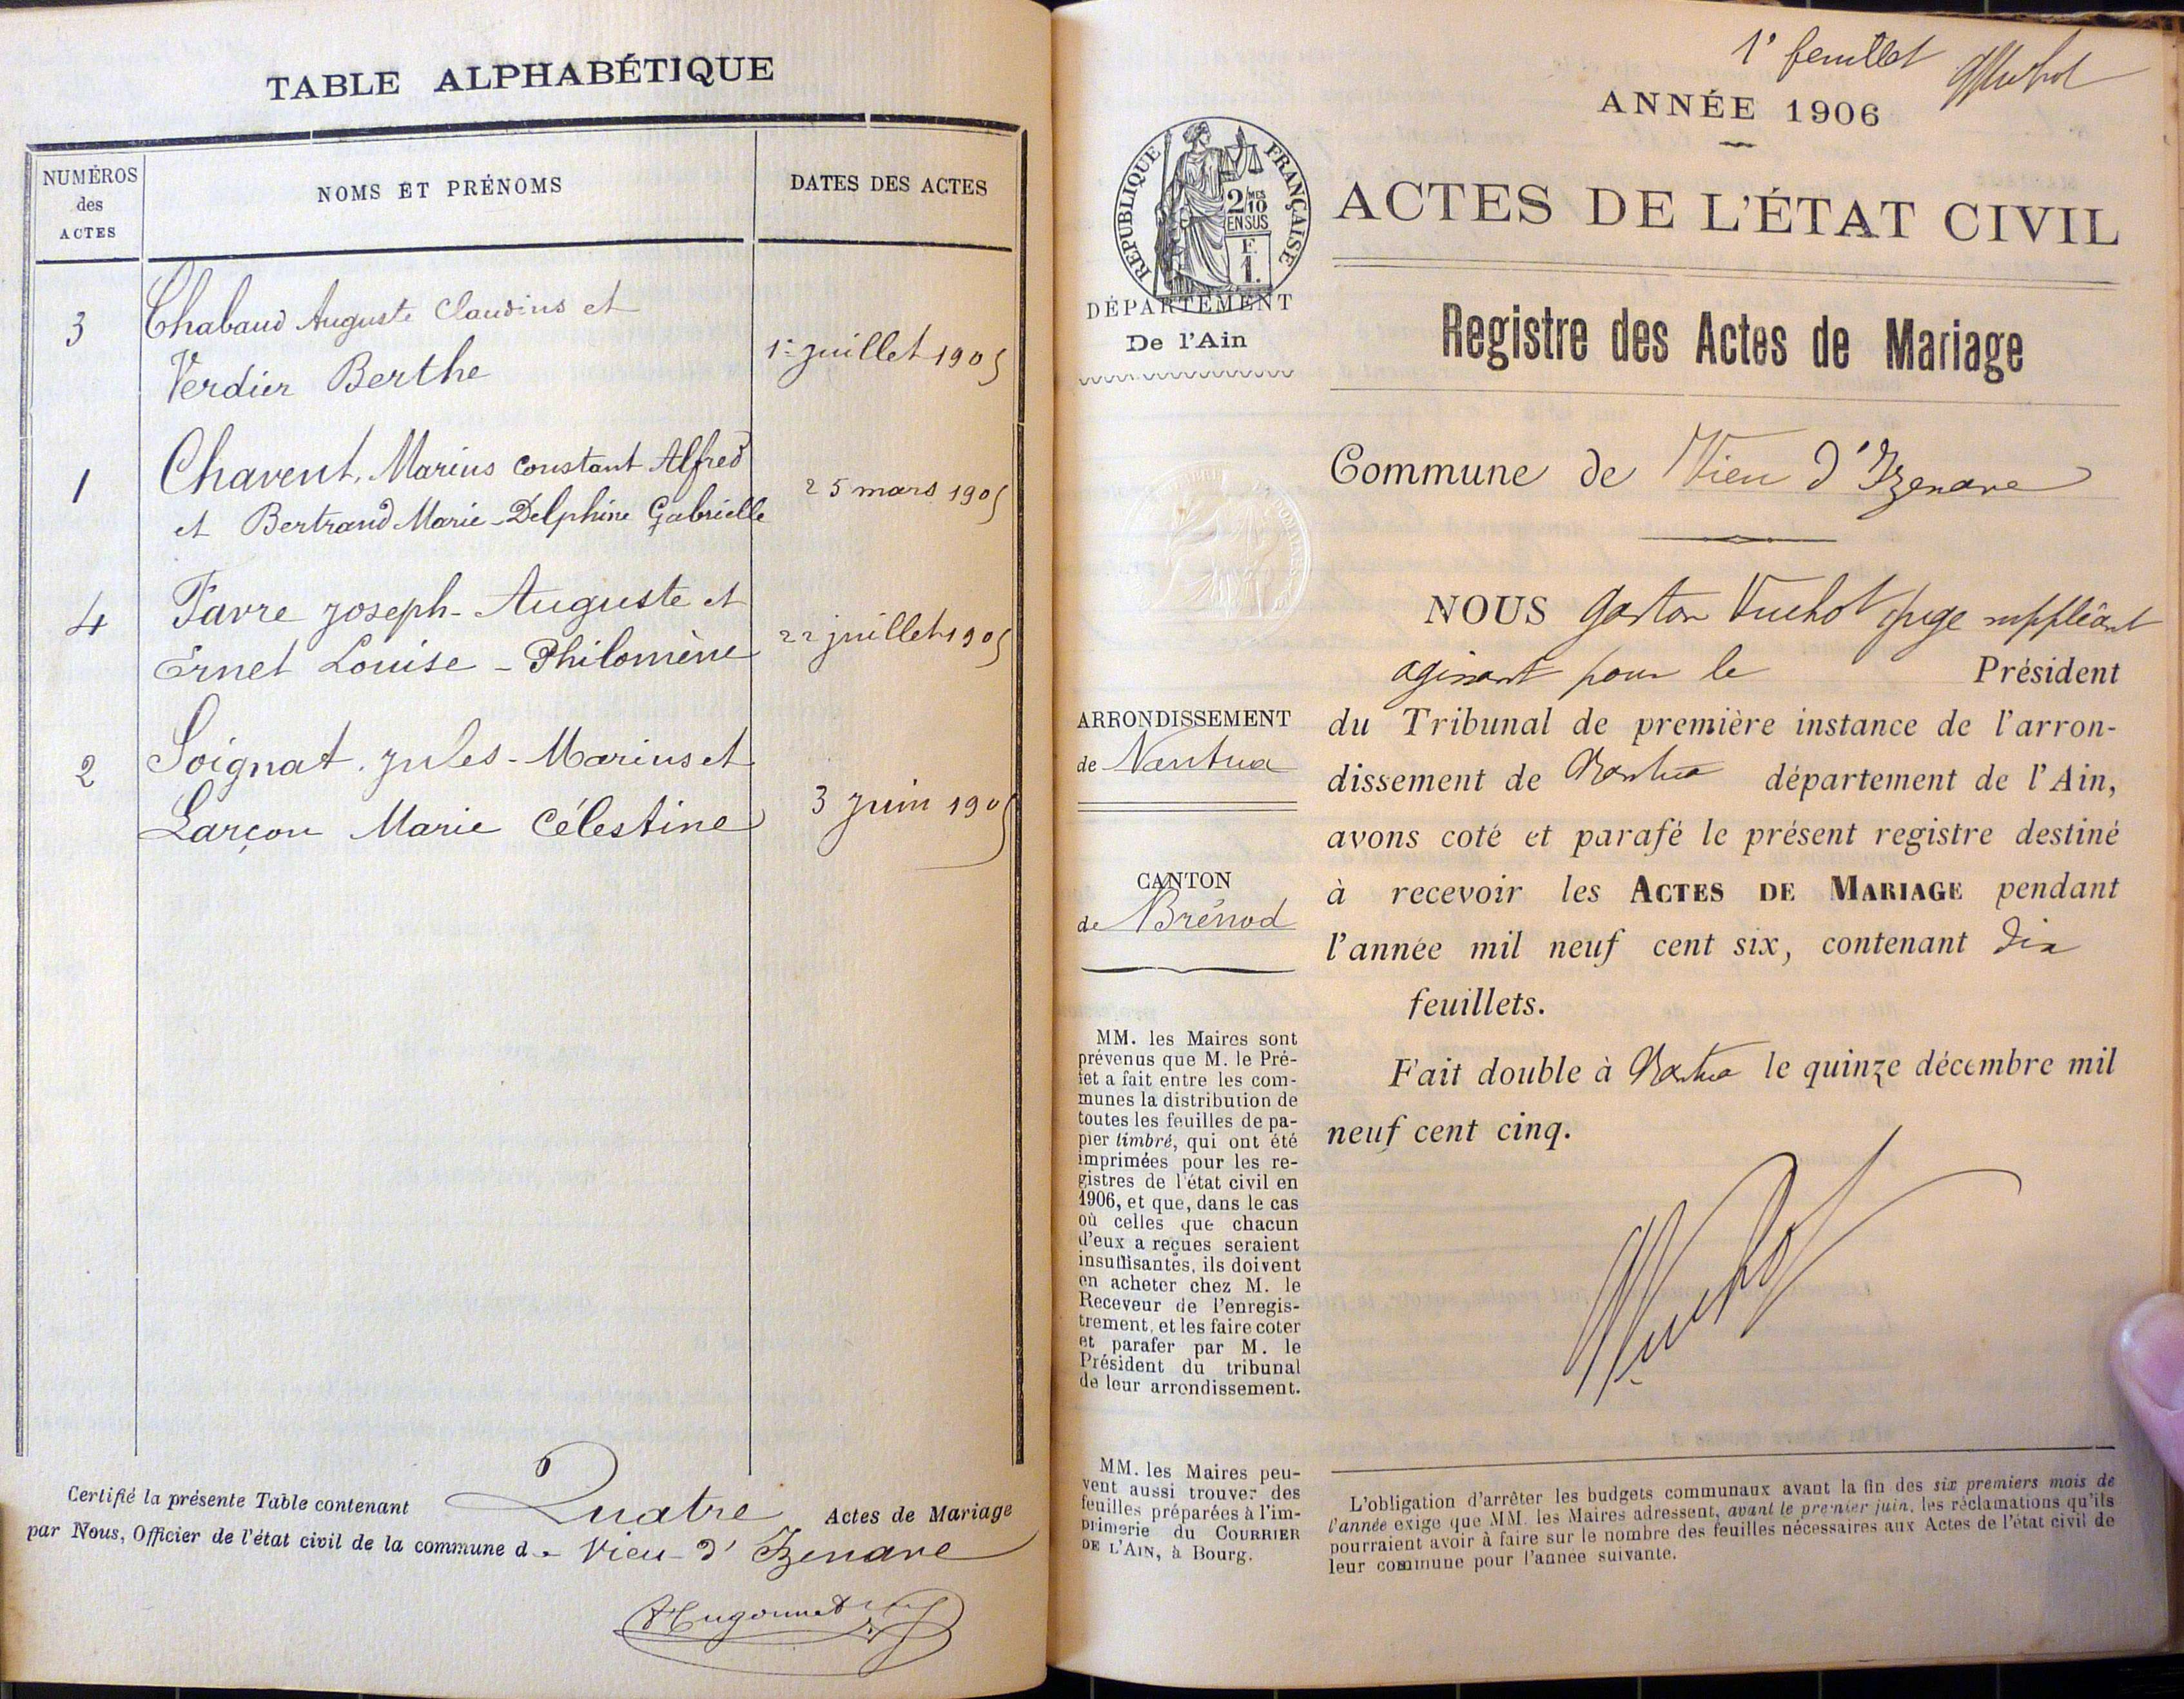 TABLE ALPHABÉTIQUE
NUMÉROS
des
ACTES
NOMS ET PRÉNOMS
DATES DES ACTES
3
Chabaud Auguste Claudius et
Verdier Berthe
1er juillet 1905
1
Chavent, Marius Constant Alfred
et Bertrand Marie-Delphine Gabrielle
25 mars 1905
4
Favre Joseph-Auguste et
Ernet Louise-Philomène
22 juillet 1905
2
Soignat. Jules-Marius et
Larçon Marie Célestine
3 Juin 1905
Certifié la présente Table contenant Quatre Actes de Mariage
par Nous, Officier de l'état civil de la commune de Vieu-d'Izenave
Hugonnet
1er feuillet Vuchot
ANNÉE 1906
RÉPUBLIQUE FRANÇAISE
2/10MES
EN SUS
F.
1.
ACTES DE L'ÉTAT CIVIL
DÉPARTEMENT
De l'Ain
Registre des Actes de Mariage
Commune de Vieu d'Izenave
NOUS Gaston Vuchot juge suppléant
agissant pour le Président
du Tribunal de première instance de l'arron-
dissement de Nantua département de l'Ain,
avons coté et parafé le présent registre destiné
à recevoir les ACTES DE MARIAGE pendant
l'année mil neuf cent six, contenant dix
feuillets.
Fait double à Nantua le quinze décembre mil
neuf cent cinq.
Vuchot
ARRONDISSEMENT
de Nantua
CANTON
de Brénod
MM. les Maires sont
prévenus que M. le Pré-
fet a fait entre les com-
munes la distribution de
toutes les feuilles de pa-
pier timbré, qui ont été
imprimées pour les re-
gistres de l'état civil en
1906, et que, dans le cas
où celles que chacun
d'eux a reçues seraient
insuffisantes, ils doivent
en acheter chez M. le
Receveur de l'enregis-
trement, et les faire coter
et parafer par M. le
Président du tribunal
de leur arrondissement.
MM. les Maires peu-
vent aussi trouver des
feuilles préparées à l'im-
primerie du COURRIER
DE L'AIN, à Bourg.
L'obligation d'arrêter les budgets communaux avant la fin des six premiers mois de
l'année exige que MM. les Maires adressent, avant le premier juin, les réclamations qu'ils
pourraient avoir à faire sur le nombre des feuilles nécessaires aux Actes de l'état civil de
leur commune pour l'année suivante.